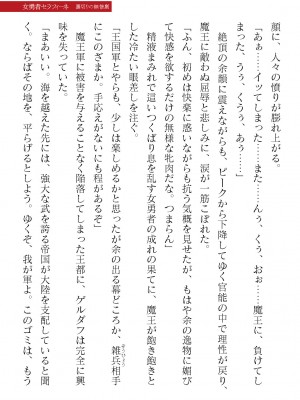 女勇者セラフィーネ
顔に、人々の憤りが膨れ上がる。
「あぁ……イッてしまった……また……んぅ、くぅ、おぉ……魔王に、負けてし
まった、うぅ、くぅぅ、あぁ……」
絶頂の余韻に震えながらも、ピークから下降してゆく官能の中で理性が戻り、
魔王に敵わぬ屈辱と悲しみに、涙が一筋こぼれた。
「ふん、初めは快楽に惑いながらも抗う気概を見せたが、もはや余の逸物に媚び
て快感を欲するだけの無様な牝肉だな。つまらん」
精液まみれで這いつくばり息を乱す女勇者の成れの果てに、魔王が飽き飽きと
した冷たい眼差しを注ぐ。
「王国軍とやらも、少しは楽しめるかと思ったが余の出る幕どころか、雑兵相手
にこのざまか。手応えがないにも程があるぞ」
魔王軍に被害を与えることなく陥落してしまった王都に、ゲルダフは完全に興
味を失っていた。
「まあいい。海を越えた先には、強大な武を誇る帝国が大陸を支配していると聞
く。ならばその地を、平らげるとしよう。ゆくぞ、我が軍よ。このゴミは、もう